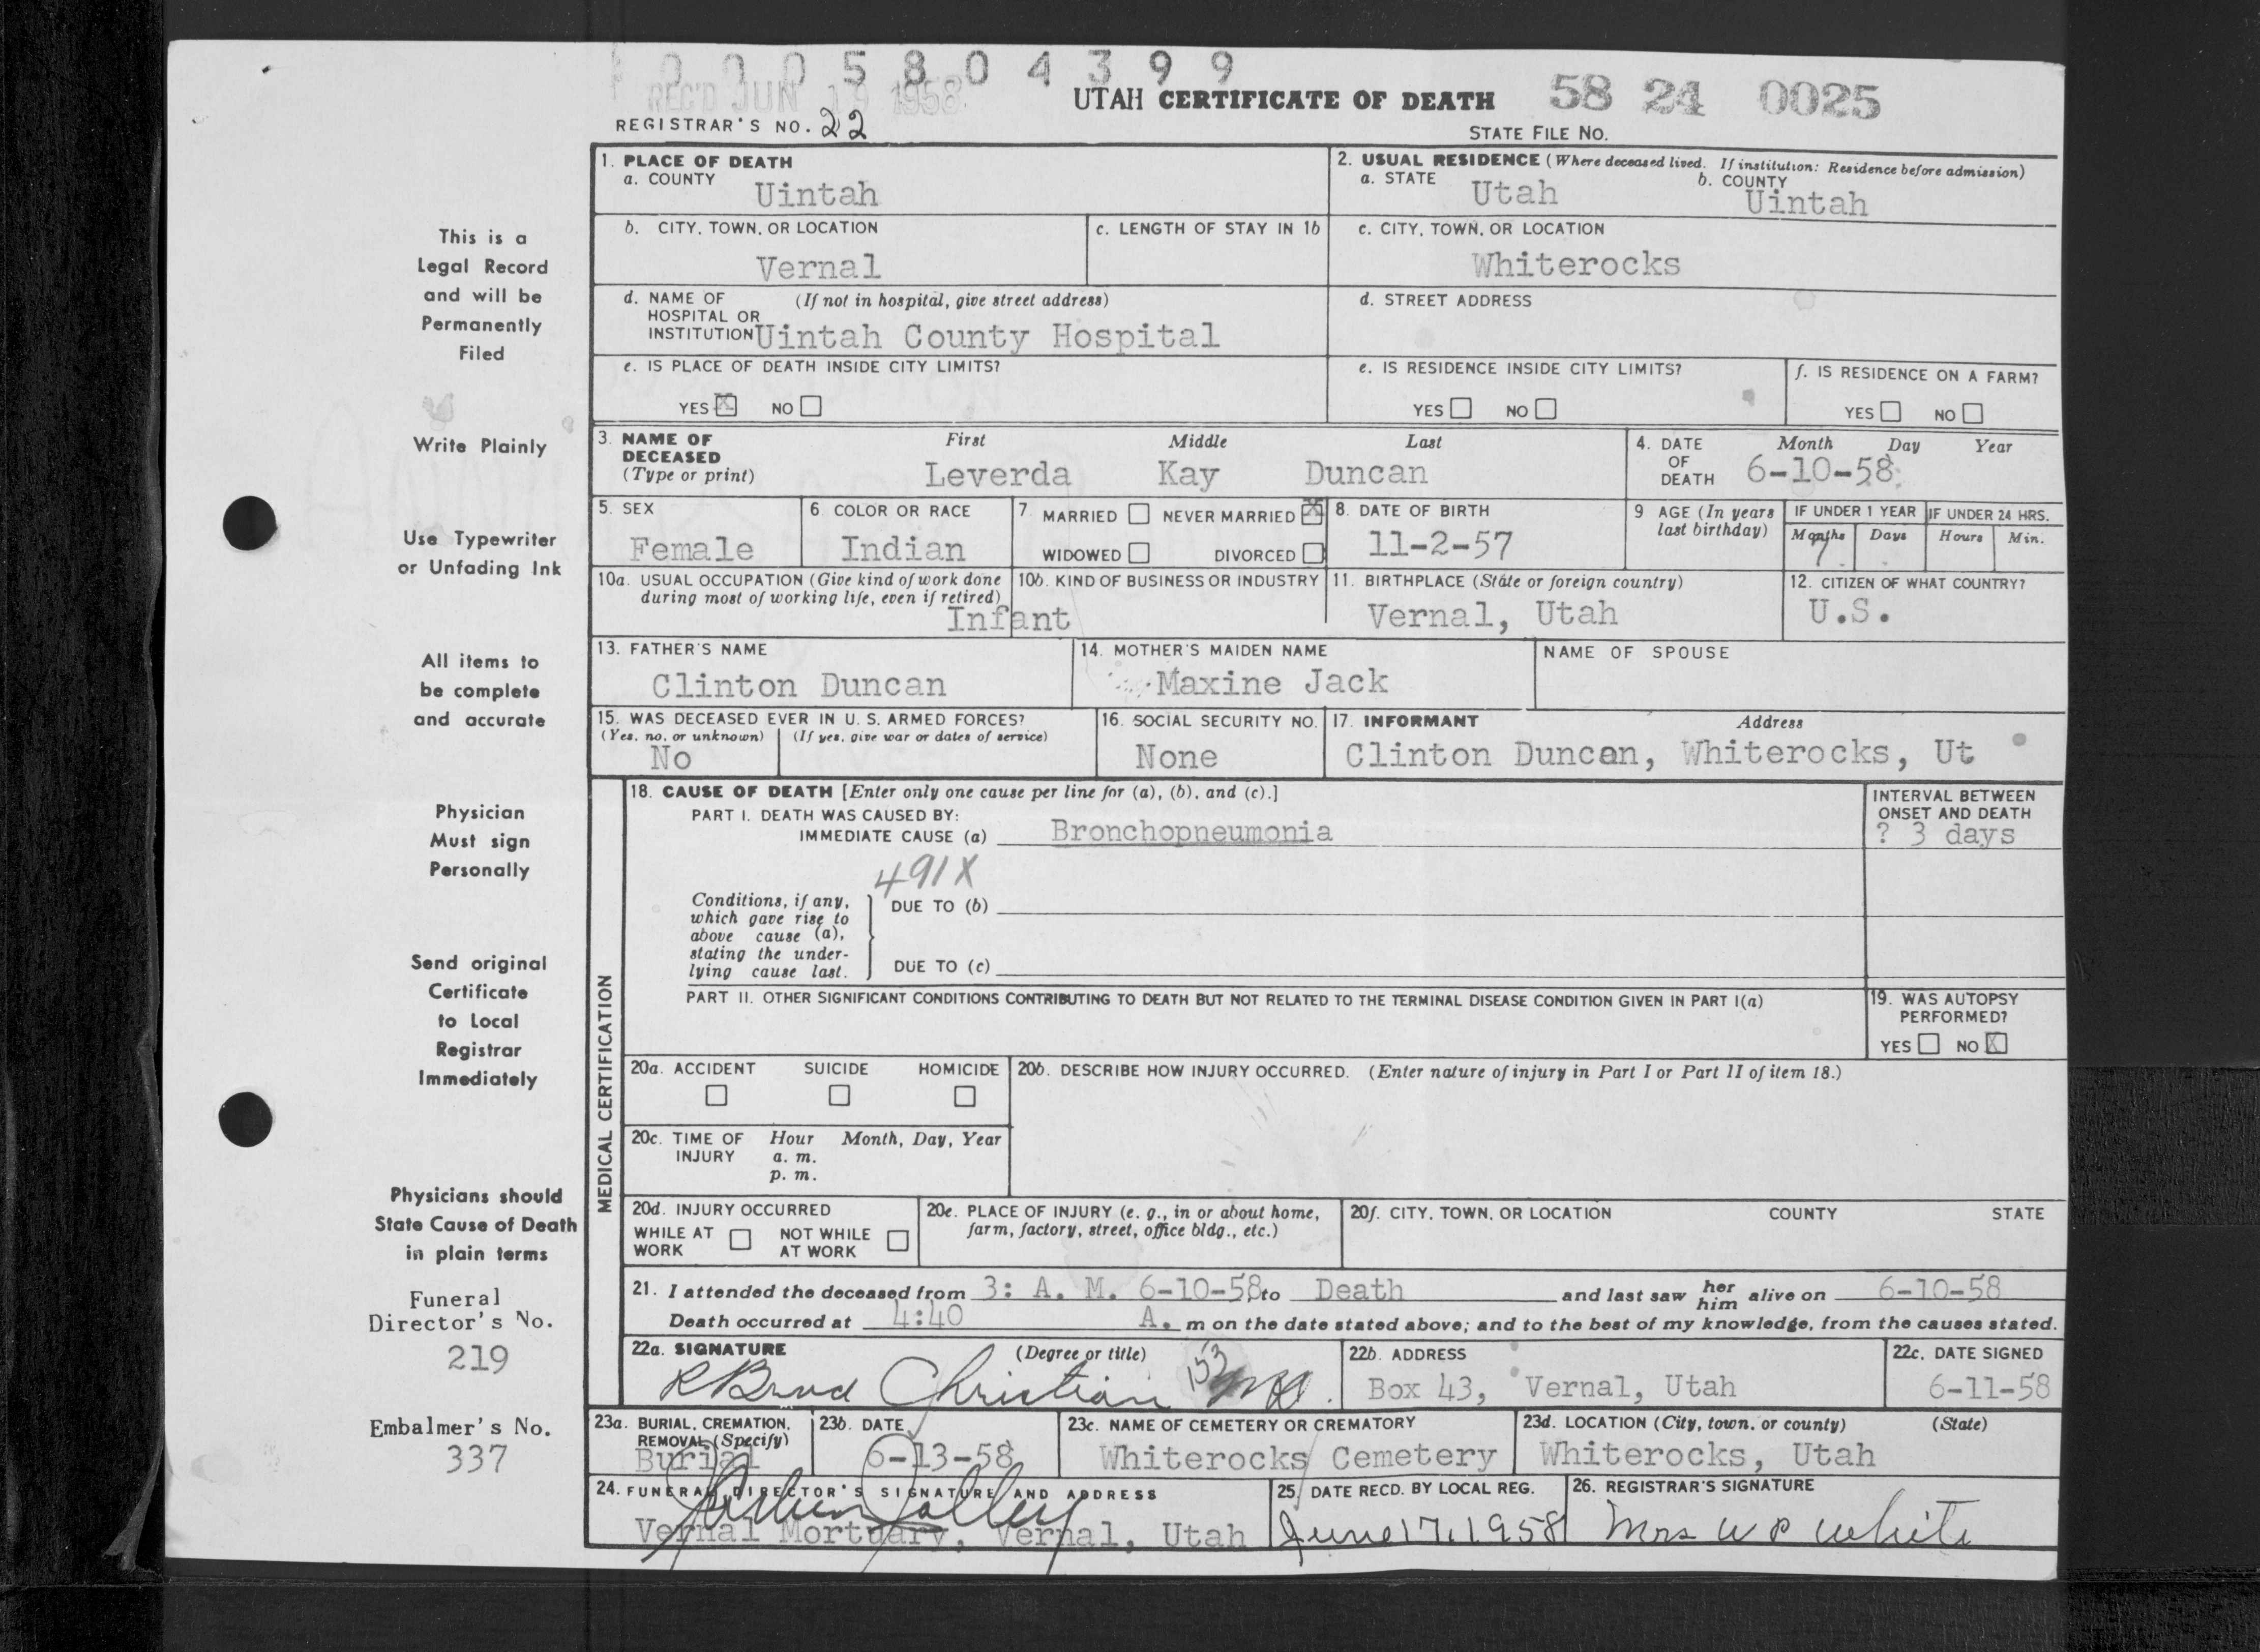 0005804399
REC'D JUN 19 1958
UTAH CERTIFICATE OF DEATH 58 24 0025
REGISTRAR'S NO. 22
STATE FILE NO.
This is a
Legal Record
and will be
Permanently
Filed
Write Plainly
Use Typewriter
or Unfading Ink
All items to
be complete
and accurate
Physician
Must sign
Personally
Send original
Certificate
to Local
Registrar
Immediately
Physicians should
State Cause of Death
in plain terms
Funeral
Director's No.
219
Embalmer's No.
337
1. PLACE OF DEATH
a. COUNTY Uintah
2. USUAL RESIDENCE (Where deceased lived. If institution: Residence before admission)
a. STATE Utah b. COUNTY Uintah
b. CITY, TOWN, OR LOCATION
Vernal
c. LENGTH OF STAY IN 1b
c. CITY, TOWN, OR LOCATION
Whiterocks
d. NAME OF (If not in hospital, give street address)
HOSPITAL OR
INSTITUTION Uintah County Hospital
d. STREET ADDRESS
e. IS PLACE OF DEATH INSIDE CITY LIMITS?
YES X NO
e. IS RESIDENCE INSIDE CITY LIMITS?
YES NO
f. IS RESIDENCE ON A FARM?
YES NO
3. NAME OF First Middle Last
DECEASED
(Type or print) Leverda Kay Duncan
4. DATE Month Day Year
OF
DEATH 6-10-58
5. SEX
Female
6. COLOR OR RACE
Indian
7. MARRIED NEVER MARRIED X
WIDOWED DIVORCED
8. DATE OF BIRTH
11-2-57
9 AGE (In years
last birthday)
IF UNDER 1 YEAR
Months Days
7
IF UNDER 24 HRS.
Hours Min.
10a. USUAL OCCUPATION (Give kind of work done
during most of working life, even if retired)
Infant
10b. KIND OF BUSINESS OR INDUSTRY
11. BIRTHPLACE (State or foreign country)
Vernal, Utah
12. CITIZEN OF WHAT COUNTRY?
U.S.
13. FATHER'S NAME
Clinton Duncan
14. MOTHER'S MAIDEN NAME
Maxine Jack
NAME OF SPOUSE
15. WAS DECEASED EVER IN U. S. ARMED FORCES?
(Yes, no, or unknown) (If yes, give war or dates of service)
No
16. SOCIAL SECURITY NO.
None
17. INFORMANT Address
Clinton Duncan, Whiterocks, Ut
MEDICAL CERTIFICATION
18. CAUSE OF DEATH [Enter only one cause per line for (a), (b), and (c).]
PART I. DEATH WAS CAUSED BY:
IMMEDIATE CAUSE (a) Bronchopneumonia
INTERVAL BETWEEN
ONSET AND DEATH
? 3 days
491X
Conditions, if any,
which gave rise to
above cause (a),
stating the under-
lying cause last.
DUE TO (b)
DUE TO (c)
PART II. OTHER SIGNIFICANT CONDITIONS CONTRIBUTING TO DEATH BUT NOT RELATED TO THE TERMINAL DISEASE CONDITION GIVEN IN PART I(a)
19. WAS AUTOPSY
PERFORMED?
YES NO X
20a. ACCIDENT SUICIDE HOMICIDE
20b. DESCRIBE HOW INJURY OCCURRED. (Enter nature of injury in Part I or Part II of item 18.)
20c. TIME OF Hour Month, Day, Year
INJURY a. m.
p. m.
20d. INJURY OCCURRED
WHILE AT NOT WHILE
WORK AT WORK
20e. PLACE OF INJURY (e. g., in or about home,
farm, factory, street, office bldg., etc.)
20f. CITY, TOWN, OR LOCATION COUNTY STATE
21. I attended the deceased from 3: A. M. 6-10-58 to Death and last saw her him alive on 6-10-58
Death occurred at 4:40 A. m on the date stated above; and to the best of my knowledge, from the causes stated.
22a. SIGNATURE (Degree or title)
R Brud Christian MD. 153
22b. ADDRESS
Box 43, Vernal, Utah
22c. DATE SIGNED
6-11-58
23a. BURIAL, CREMATION,
REMOVAL (Specify)
Burial
23b. DATE
6-13-58
23c. NAME OF CEMETERY OR CREMATORY
Whiterocks Cemetery
23d. LOCATION (City, town, or county) (State)
Whiterocks, Utah
24. FUNERAL DIRECTOR'S SIGNATURE AND ADDRESS
Vernal Mortuary, Vernal, Utah
25. DATE RECD. BY LOCAL REG.
June 17, 1958
26. REGISTRAR'S SIGNATURE
Mrs W P White